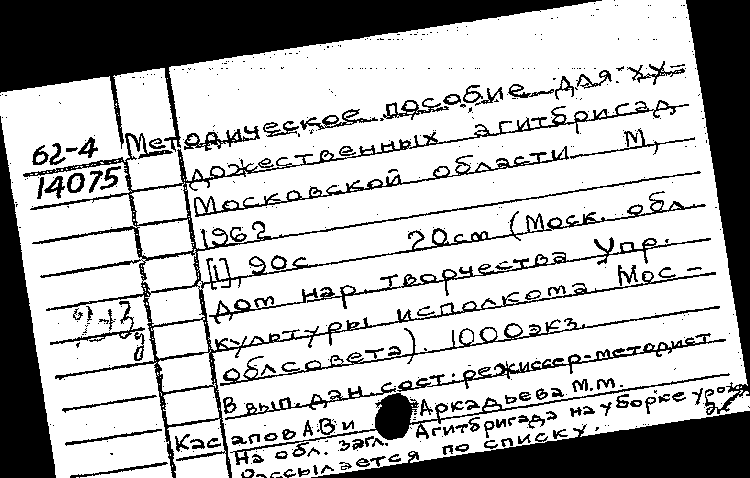 62-4
14075
Методическое пособие для ху-
дожественных агитбригад
Московской области М,
1962.
[1], 90с 20см (Моск. обл.
дом нар. творчества Упр.
культуры исполкома Мос-
облсовета). 1000экз.
В вып. дан. сост: режиссер-методист
Касапов А.В и Аркадьева М.М.
На обл. загл. Агитбригада на уборке урожая
Рассылается по списку.